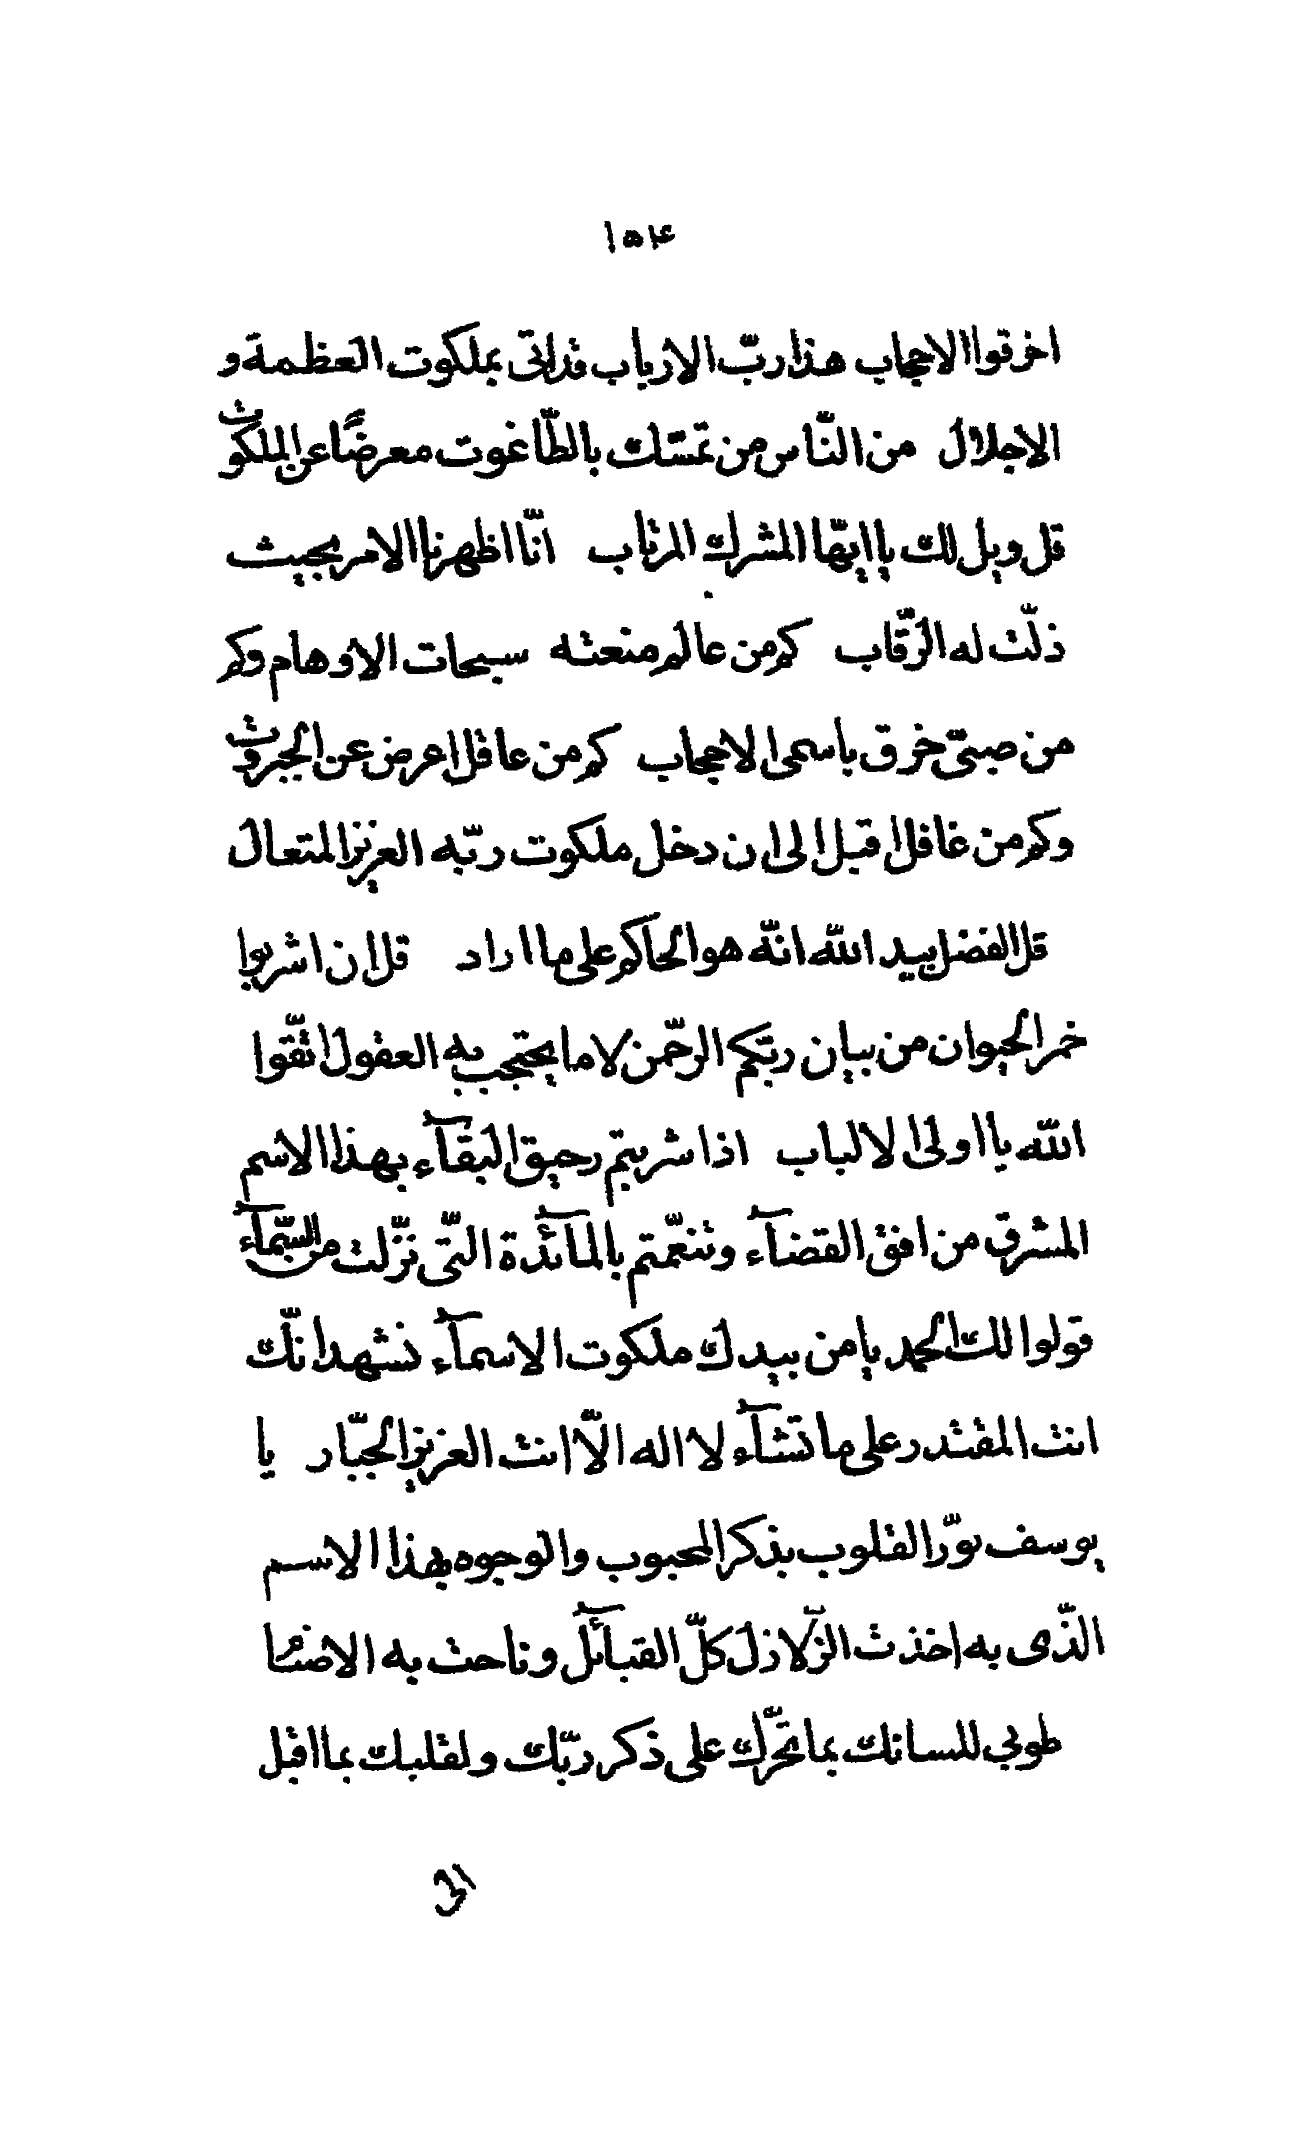 ١٥۴
اخرقوا الاحجاب هذا ربّ الارباب قد اتى بملكوت العظمة و
الاجلال من النّاس من تمسّك بالطّاغوت معرضًا عن الملكوت
قل ويل لك يا ايّها المشرك المرتاب انّا اظهرنا الامر بحيث
ذلّت له الرّقاب كم من عالم منعته سبحات الاوهام وكم
من صبىّ خرق باسمى الاحجاب كم من عاقل اعرض عن الجبروت
وكم من غافل اقبل الى ان دخل ملكوت ربّه العزيز المتعال
قل الفضل بيد اللّه انّه هو الحاكم على ما اراد قل ان اشربوا
خمر الحيوان من بيان ربّكم الرّحمن لا ما يحتجب به العقول اتّقوا
اللّه يا اولى الالباب اذا شربتم رحيق البقآء بهذا الاسم
المشرق من افق القضآء وتنعّمتم بالمآئدة الّتى نزّلت من السّمآء
قولوا لك الحمد يا من بيدك ملكوت الاسمآء نشهد انّك
انت المقتدر على ما تشآء لا اله الّا انت العزيز الجبّار يا
يوسف نوّر القلوب بذكر المحبوب والوجوه بهذا الاسم
الّذى به اخذت الزّلازل كلّ القبآئل وناحت به الاصنام
طوبى للسانك بما تحرّك على ذكر ربّك ولقلبك بما اقبل
الى